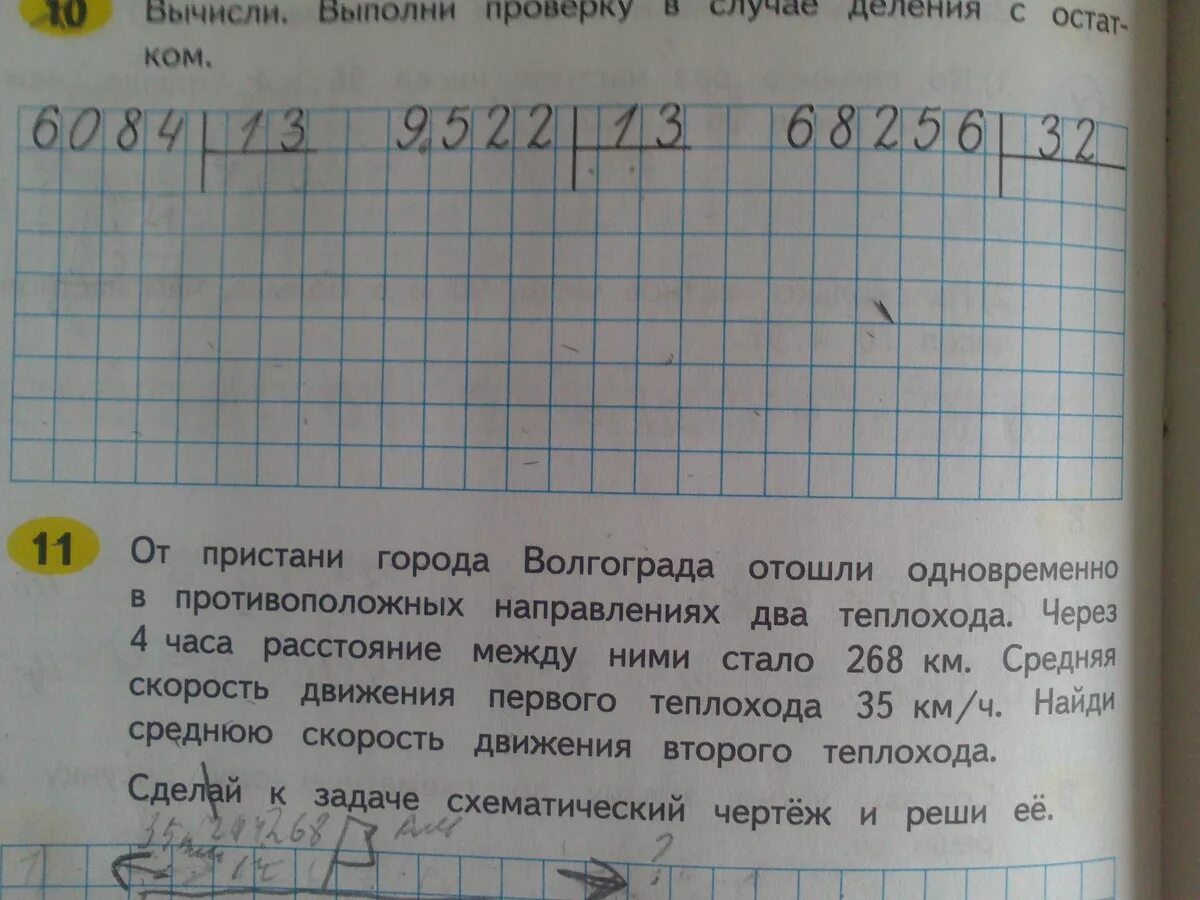 10 Вычисли. Выполни проверку в случае деления с остат-
ком.
6084 13 9522 13 68256 32
11 От пристани города Волгограда отошли одновременно
в противоположных направлениях два теплохода. Через
4 часа расстояние между ними стало 268 км. Средняя
скорость движения первого теплохода 35 км/ч. Найди
среднюю скорость движения второго теплохода.
Сделай к задаче схематический чертёж и реши её.
35 268 ?